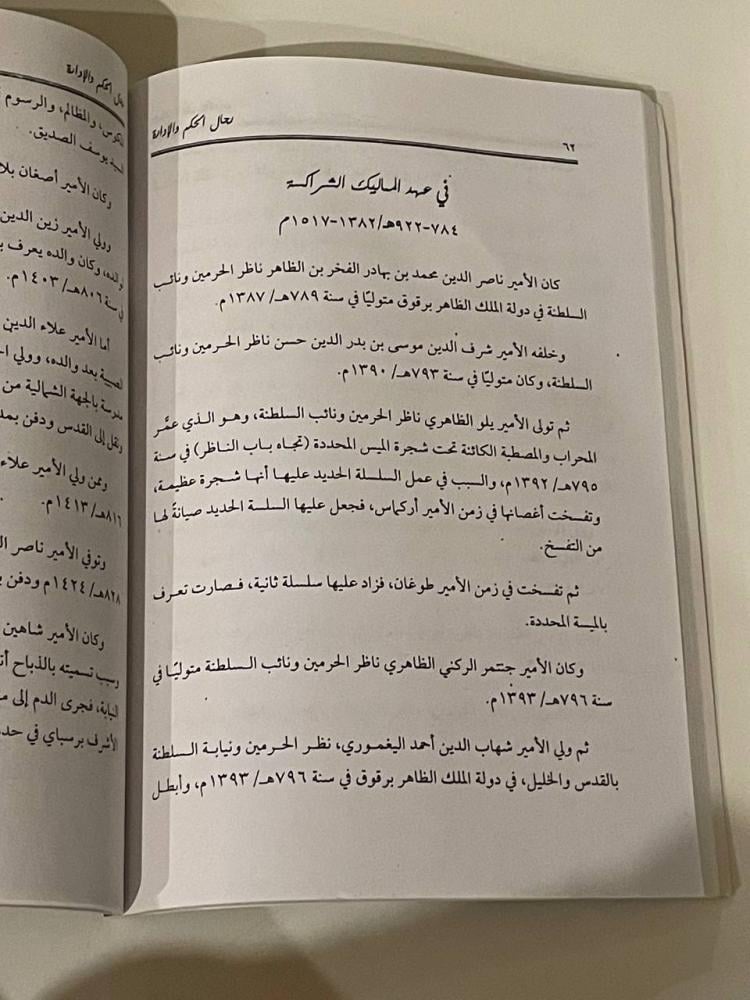 رجال الحكم والإدارة
٦٢
في عهد المماليك الشراكسة
٧٨٤-٩٢٢هـ/١٣٨٢-١٥١٧م
كان الأمير ناصر الدين محمد بن بهادر الفخر بن الظاهر ناظر الحرمين ونائب
السلطنة في دولة الملك الظاهر برقوق متوليًا في سنة ٧٨٩هـ/ ١٣٨٧م.
وخلفه الأمير شرف الدين موسى بن بدر الدين حسن ناظر الحرمين ونائب
السلطنة، وكان متوليًا في سنة ٧٩٣هـ/ ١٣٩٠م.
ثم تولى الأمير يلو الظاهري ناظر الحرمين ونائب السلطنة، وهو الذي عمَّر
المحراب والمصطبة الكائنة تحت شجرة الميس المحددة (تجاه باب الناظر) في سنة
٧٩٥هـ/ ١٣٩٢م، والسبب في عمل السلسلة الحديد عليها أنها شجرة عظيمة،
وتفسخت أغصانها في زمن الأمير أركماس، فجعل عليها السلسة الحديد صيانةً لها
من التفسخ.
ثم تفسخت في زمن الأمير طوغان، فزاد عليها سلسلة ثانية، فصارت تعرف
بالميسة المحددة.
وكان الأمير جنتمر الركني الظاهري ناظر الحرمين ونائب السلطنة متوليًا في
سنة ٧٩٦هـ/ ١٣٩٣م.
ثم ولي الأمير شهاب الدين أحمد اليغموري، نظر الحرمين ونيابة السلطنة
بالقدس والخليل، في دولة الملك الظاهر برقوق في سنة ٧٩٦هـ/ ١٣٩٣م، وأبطل
الحكم والإدارة
المكوس، والمظالم، والرسوم
يوسف الصديق.
وكان الأمير أصغان بلا
وولي الأمير زين الدين
والده، وكان والده يعرف
في سنة ٨٠٦هـ/ ١٤٠٣م.
أما الأمير علاء الدين
بعد والده، وولي
مدرسة بالجهة الشمالية من
ونقل إلى القدس ودفن
وممن ولي الأمير علاء
٨١٦هـ/ ١٤١٣م.
وتوفي الأمير ناصر
٨٢٨هـ/ ١٤٢٤م ودفن
وكان الأمير شاهين
وسبب تسميته بالذباح
النيابة، فجرى الدم إلى
الأشرف برسباي في